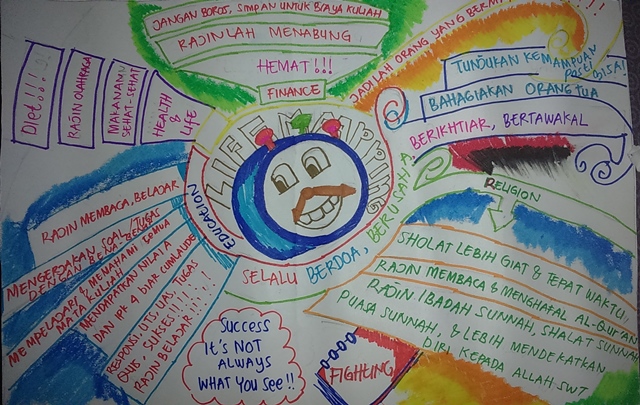 JANGAN BOROS, SIMPAN UNTUK BIAYA KULIAH
RAJINLAH MENABUNG
HEMAT!!!
FINANCE
JADILAH ORANG YANG
!!!
TUNJUKAN KEMAMPUAN
PASTI BISA!
BAHAGIAKAN ORANG TUA
BERIKHTIAR, BERTAWAKAL
Diet!!!
RAJIN OLAHRAGA
MAKANAN
SEHAT-SEHAT
HEALTH
& LIFE
LIFE MAPPING
EDUCATION
RAJIN MEMBACA, BELAJAR
MENGERJAKAN SOAL/TUGAS
DENGAN BENAR-BENAR
MEMPELAJARI & MEMAHAMI SEMUA
MATA KULIAH
MENDAPATKAN NILAI A
DAN IPK 4 biar CUMLAUDE
RESPONSI, UTS, UAS, TUGAS
QUIS, SUKSES!!!!!
RAJIN BELAJAR!!!!
SELALU BERDOA, BERUSAHA,
RELIGION
SHOLAT LEBIH GIAT & TEPAT WAKTU,
RAJIN MEMBACA & MENGHAFAL AL-QUR'AN
RAJIN IBADAH SUNNAH, SHALAT SUNNAH
PUASA SUNNAH, & LEBIH MENDEKATKAN
DIRI KEPADA ALLAH SWT
SUCCESS
IT'S NOT
ALWAYS
WHAT YOU SEE!!
FIGHTING